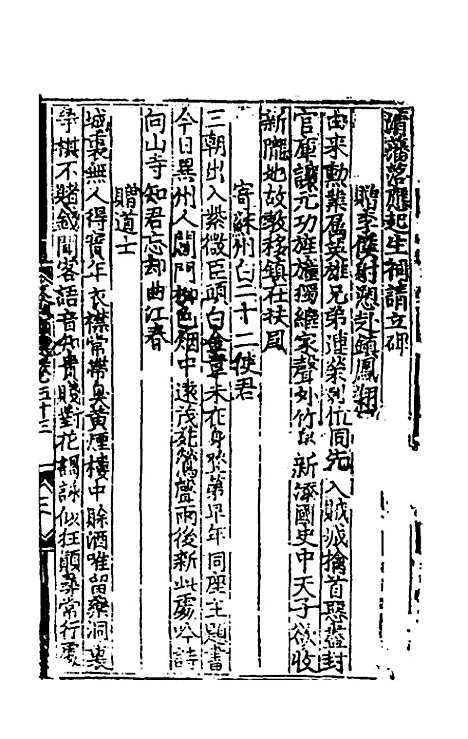 藩落應起生祠請立碑
贈李僕射愬赴鎮鳳翔
由來勳業屬英雄兄弟連榮列位同先入賊城擒首惡盡封
官庫讓元功旌旗獨繼家聲外竹帛新添國史中天子欲收
新隴地故教移鎮在扶風
寄蘇州白二十二使君
三朝出入紫微臣頭白金章未在身登第早年同座主題書
今日異州人閶門柳色烟中遠茂苑鶯聲雨後新此處吟詩
向山寺知君忘却曲江春
贈道士
城裏無人得實年衣襟常帶臭黃煙樓中賖酒唯留藥洞裏
爭棋不賭錢聞客語音知貴賤對花歌詠似狂顛尋常行處
卷五十三